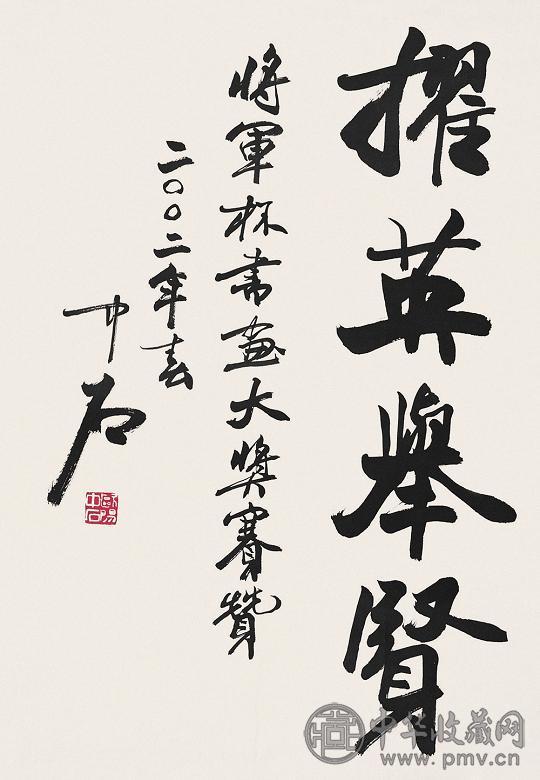 擢英舉賢
将軍杯書畫大奖賽贊
二〇〇二年春
中石
歐陽中石
中华收藏网
www.pmv.cn